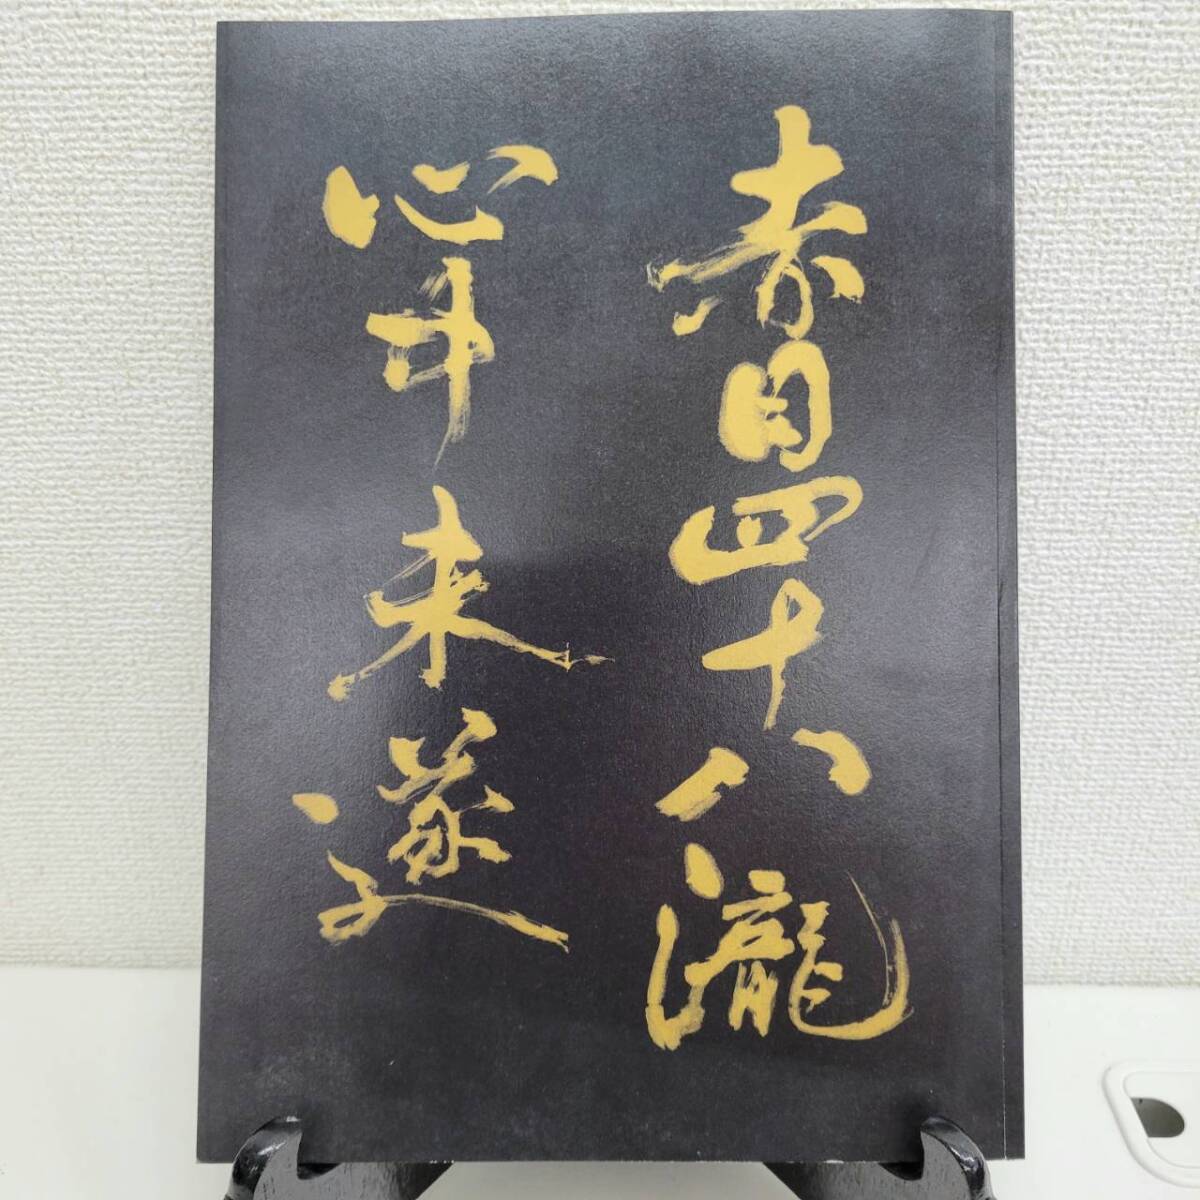 赤目四十八瀧
心中未遂